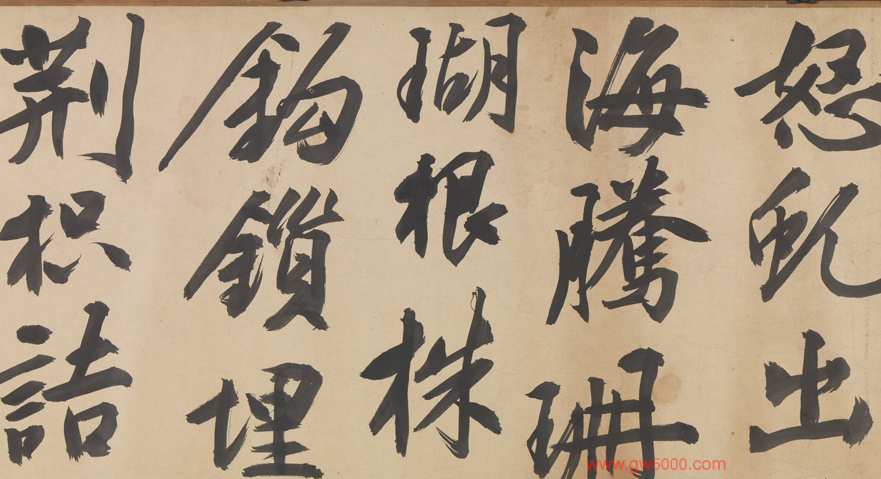 怒虬出
海騰珊
瑚根株
鈎鎖埋
荆枳詰
www.gw5000.com